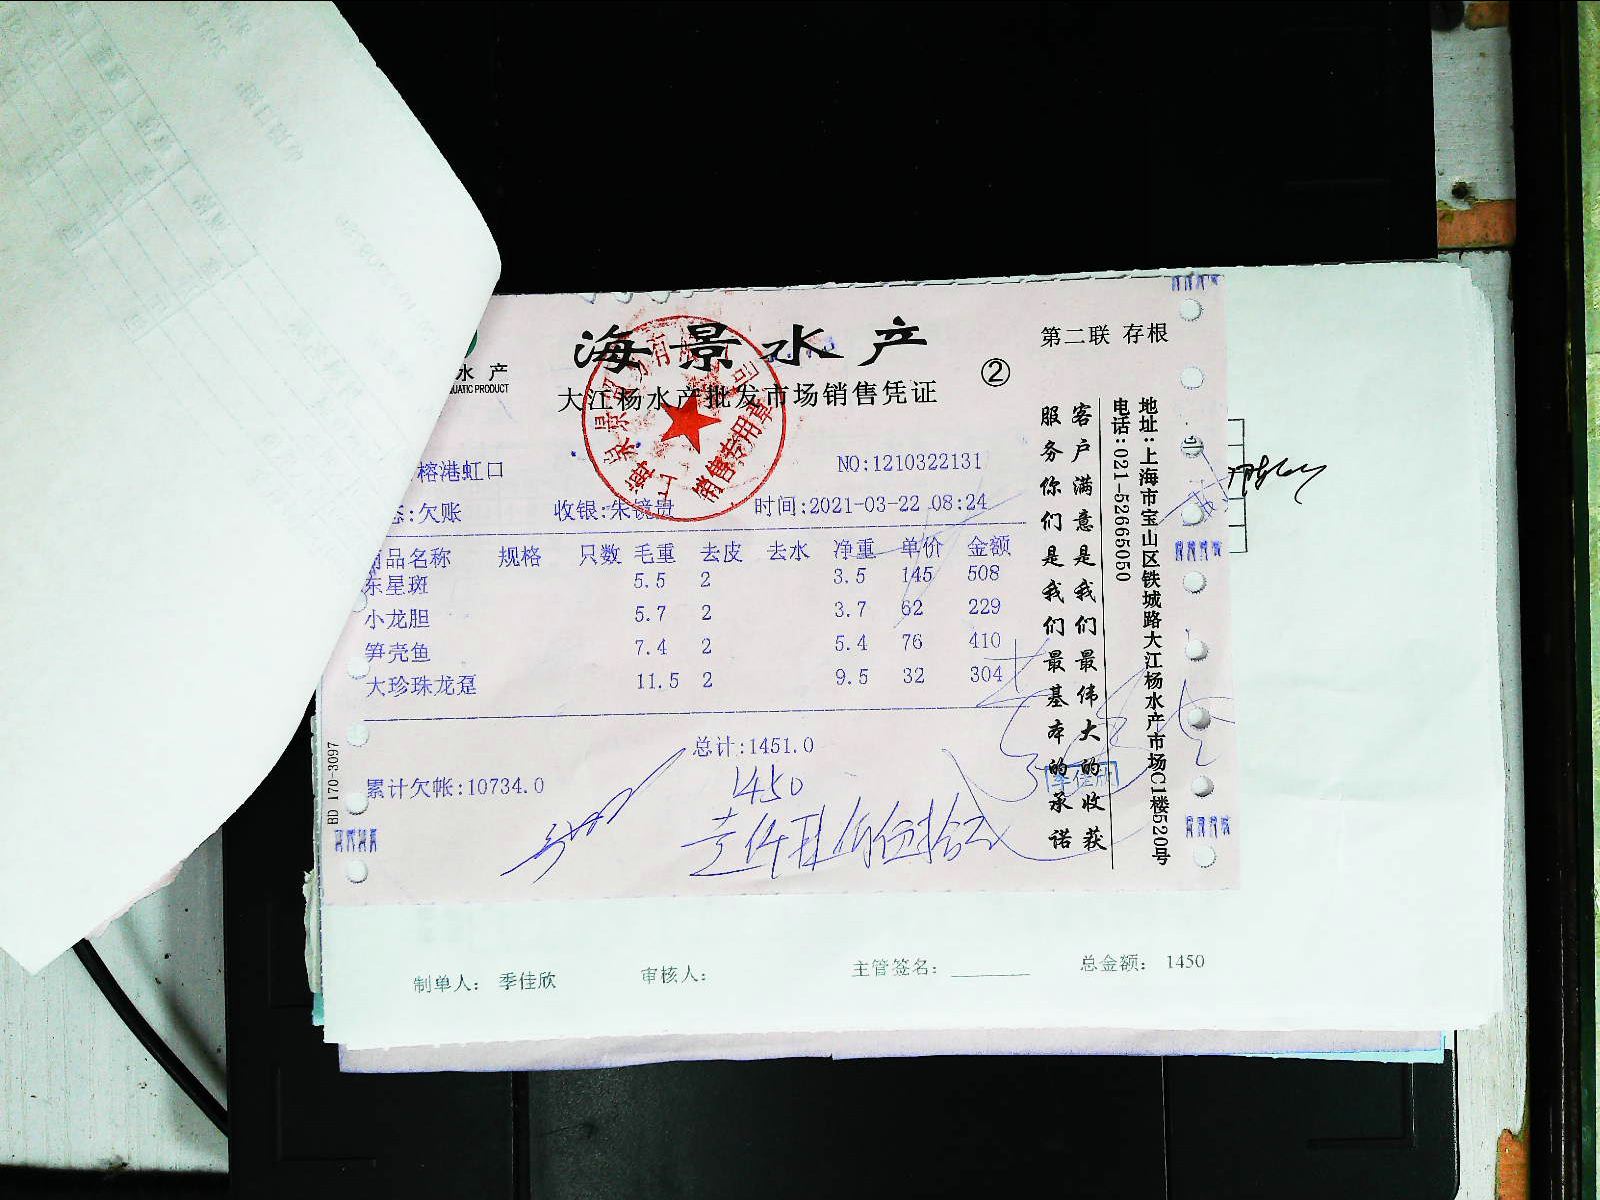 海景水产
第二联 存根
②
水产
UATIC PRODUCT
大江杨水产批发市场销售凭证
榕港虹口
NO:1210322131
:欠账 收银:朱镜贵 时间:2021-03-22 08:24
品名称 规格 只数 毛重 去皮 去水 净重 单价 金额
东星斑 5.5 2 3.5 145 508
小龙胆 5.7 2 3.7 62 229
笋壳鱼 7.4 2 5.4 76 410
大珍珠龙趸 11.5 2 9.5 32 304
总计:1451.0
累计欠帐:10734.0
1450
壹仟肆佰伍拾元
销售专用章
客户满意是我们最伟大的收获
服务你们是我们最基本的承诺
地址:上海市宝山区铁城路大江杨水产市场C1楼520号
电话:021-52665050
季佳欣
BD 170-3097
制单人: 季佳欣 审核人: 主管签名: 总金额: 1450